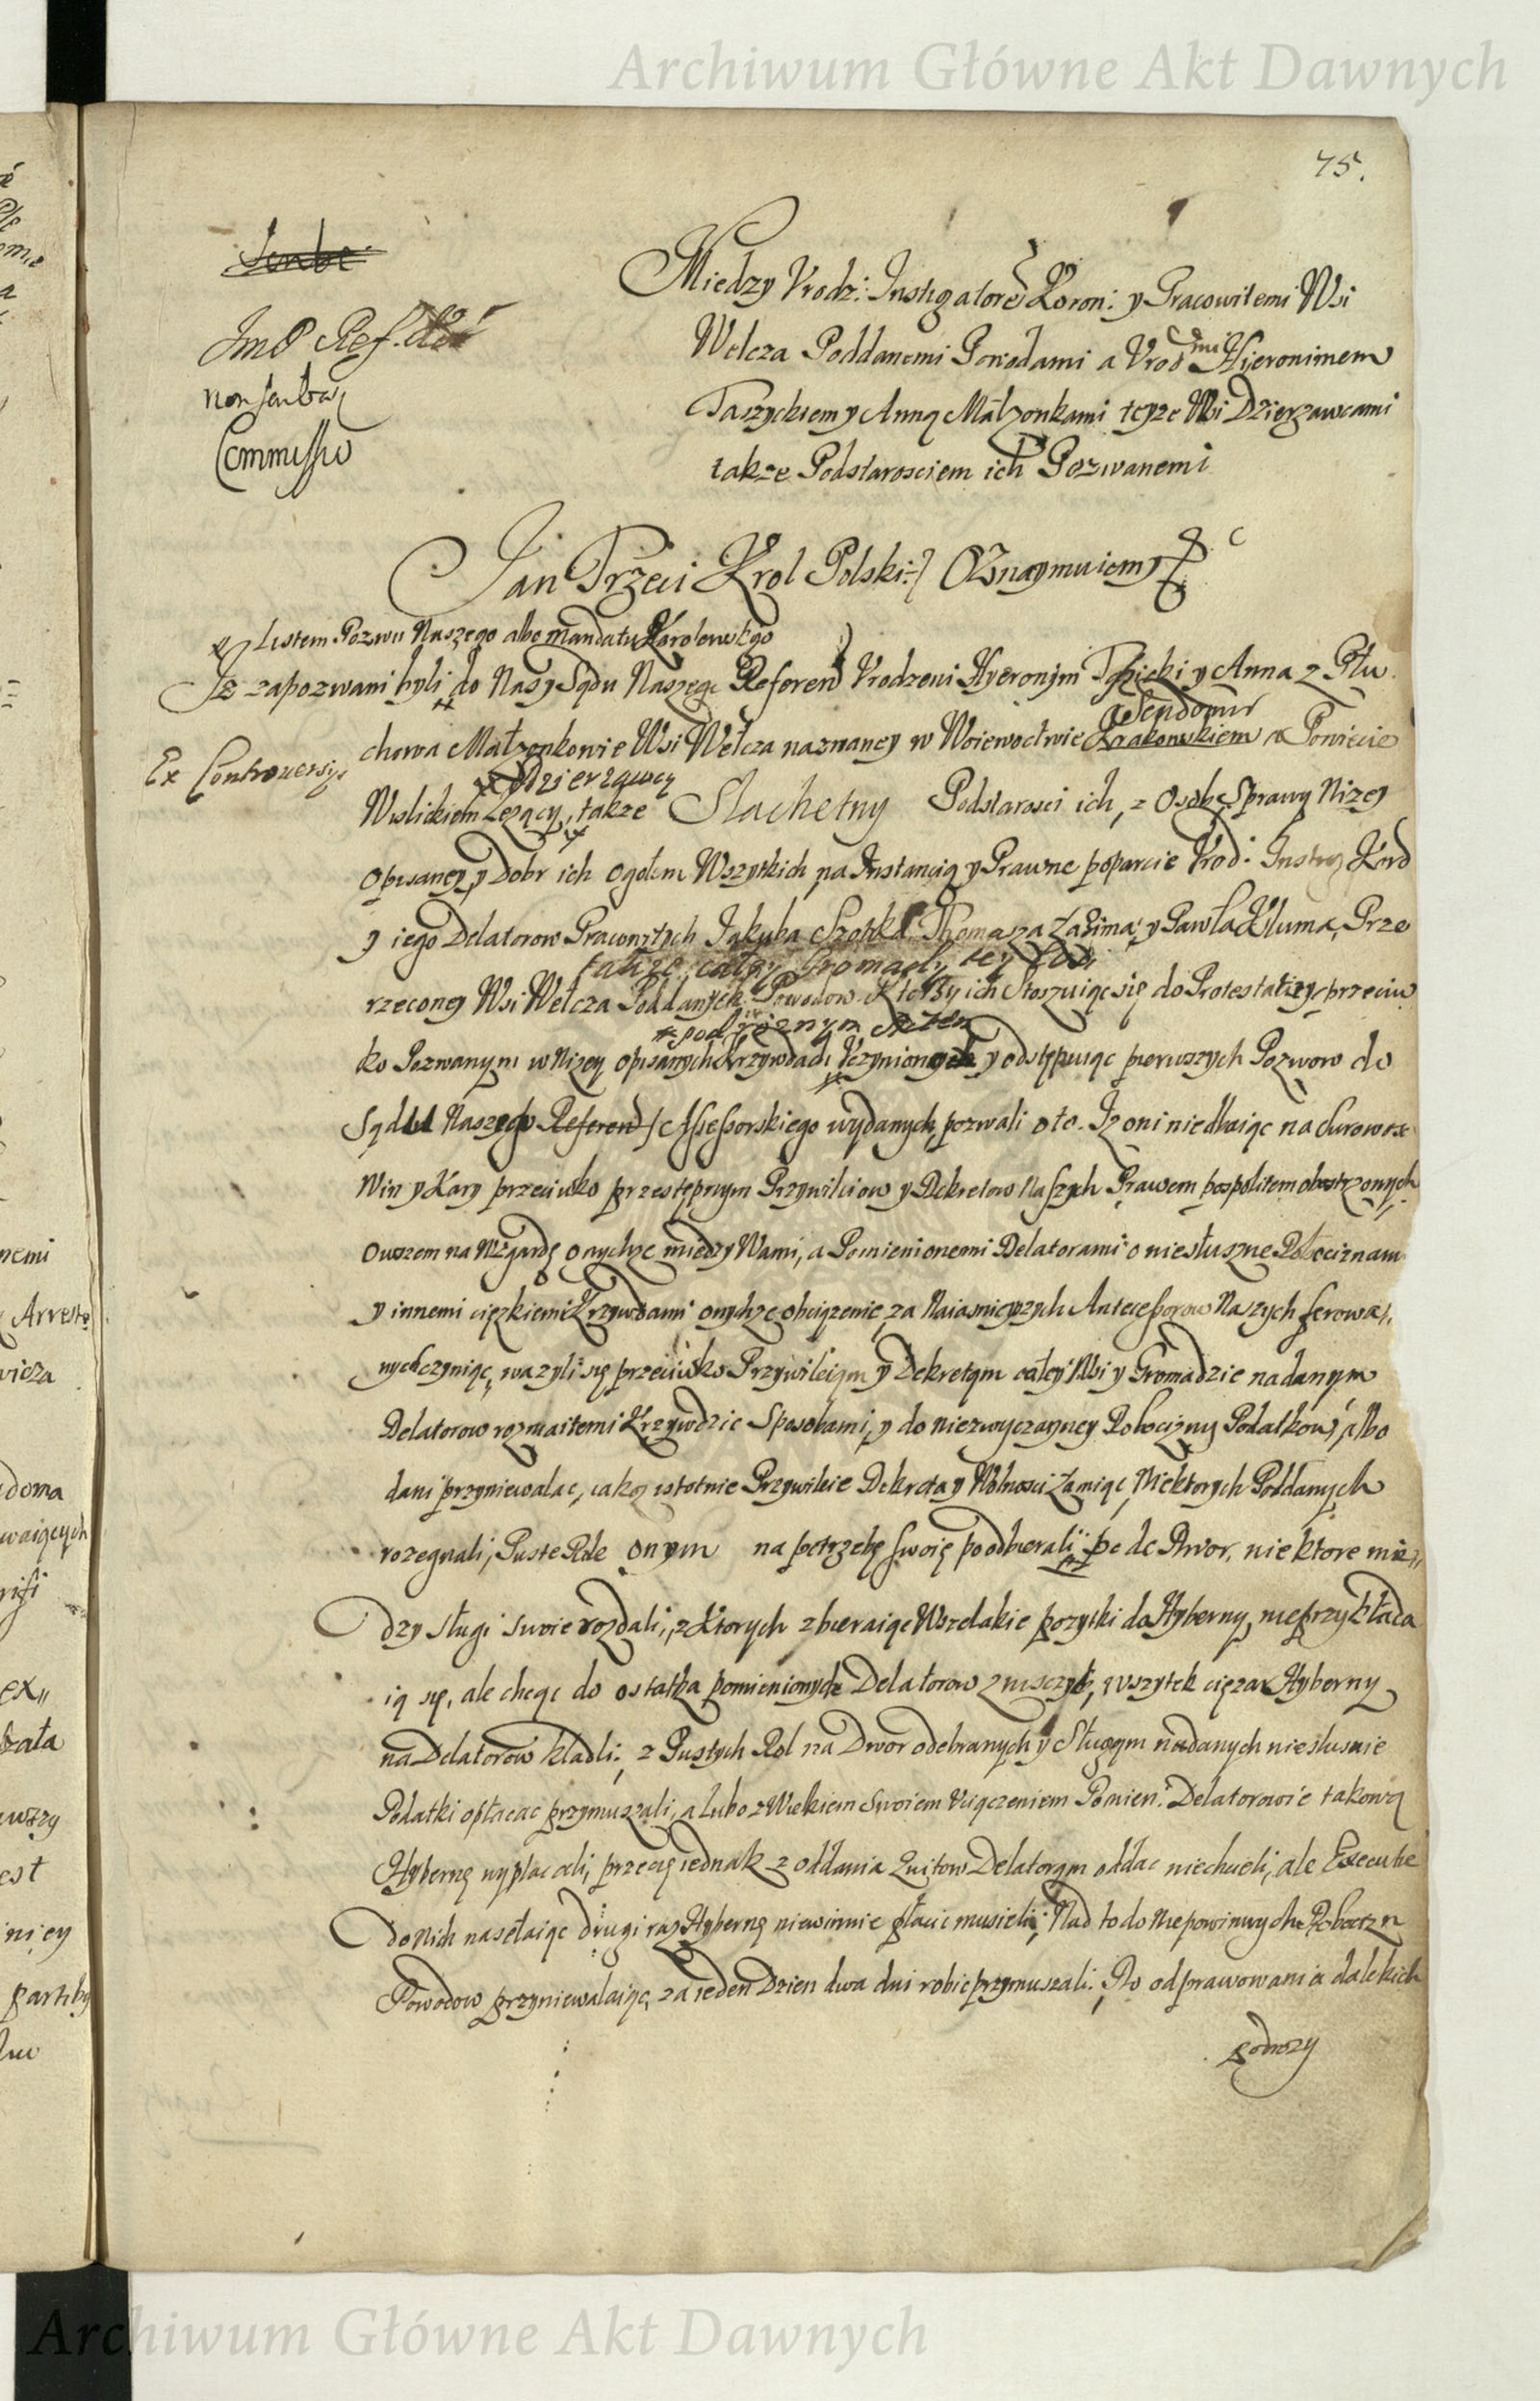 Archiwum Główne Akt Dawnych
75.
Scribe
Jmo Ref.
non scribac
Commissio
Miedzy Vrodz: Instigatorē Koron: y Pracowitemi Wsi
Welcza Poddanemi Powodami a Vrod mi Hieronimem
Taszyckiem y Anną Małzonkami teyze Wsi Dzierzawcami
takze Podstarosciem ich Pozwanemi
Jan Trzeci Krol Polski Oznaymuiemy &c
Listem Pozwu Naszego albo mandatu Krolewskgo
Jz zapozwani byli do Nas y Sądu Naszego Referen Vrodzeni Hyeronym Taszicki y Anna z Płu
Sendomir
chowa Małzonkowie Wsi Wełcza nazwaney w Woiewoctwie Krakowskiem a Powiecie
Ex Controuersijs
Dzierzawcy
Wislickiem Lezący, takze Slachetny Podstarosci ich, z Osob, Sprawy Nizey
opisaney, y Dobr ich ogołem Wszytkich, na Instancią y Prawne poparcie Vrod: Instig Kord
y iego Delatorow Pracowitych Jakuba Thomasza Łazima, y Pawła Kluma, Prze
takze całey Gromady tey Wsi
rzeconey Wsi Wełcza Poddanych Powodow. Ktorzy ich Stoszuiąc się do Protestatiey przeciw
pod roznym Actem
ko Pozwanym w Nizey opisanych Krzywdach Vczynioney y odstępuiąc pierwszych Pozwow do
Sądu Naszego Referen Assessorskiego wydanych, pozwali oto. Jz oni niedbaiąc na surowosc
Win y Kary przeciwko przestępnym Przywileiow y Dekretow Naszych Prawem pospolitem obostrzonych
owszem na Wzgardę onychze miedzy Wami, a Pomienionemi Delatorami o niesłuszne Robociznam
y innemi cięzkiemi Krzywdami onychze obciązenie, za Naiasnieyszych Antecessorow Naszych ferowa,,
nych czyniąc, wazyli się przeciwko Przywileiom y Dekretom całey Wsi y Gromadzie nadanym
Delatorow rozmaitemi Krzywdzic Sposobami, y do niezwyczayney Robocizny Podatkow, albo
dani przyniewalac, iakoz istotnie Przywileie Dekreta y Wolnosci łamiąc, Niektorych Poddanych
rozegnali, Puste Role onym na potrzebę swoię poodbierali, to do Dwor, niektore mie,,
dzy sługi swoie rozdali, z Ktorych zbieraiąc Wszelakie pozytki do Hyberny, nieprzykłada
ią się, ale chcąc do ostatka pomienionych Delatorow zniszczyc, wszytek cięzar Hyberny
na Delatorow kładli, z Pustych Rol na Dwor odebranych y Sługom nadanych niesłusnie
Podatki opłacac przymuszali, a lubo z Wielkiem Swoiem Vciązeniem Pomien: Delatorowie takową
Hybernę wypłacali, przecię iednak z oddania Quitow Delatorom oddac niechcieli, ale Executie
do Nich nasełaiąc drugi raz Hybernę niewinnie płacic musieli; Nad to do Niepowinnych Robocizn
Powodow przyniewalaiąc, za ieden Dzien dwa dni robic przymuszali. Do odprawowania dalekich
podrozy
nemi
Arreste
doma
waiących
ex,,
est
niey
Archiwum Główne Akt Dawnych